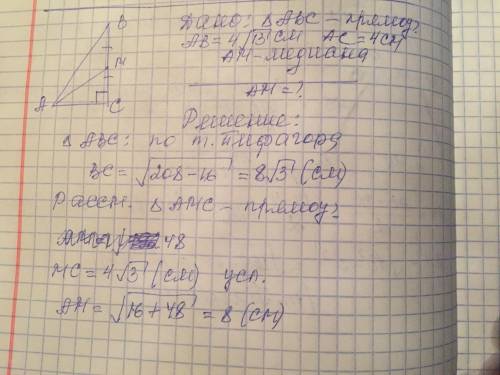 B
M
A C
Дано: △ABC – прямоуг
AB = 4√13 см AC = 4см
AM – медиана
AM = ?
Решение:
△ABC: по т. Пифагора
BC = √208-16 = 8√3 (см)
Рассм. △AMC – прямоуг
48
MC = 4√3 (см) усл.
AM = √16+48 = 8 (см)